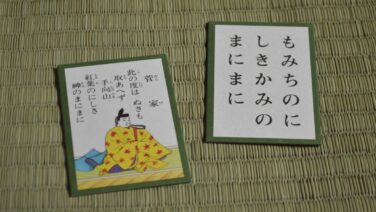 菅家
此の度は ぬさも
取あへず
手向山
紅葉のにしき
神のまにまに
もみちのに
しきかみの
まにまに